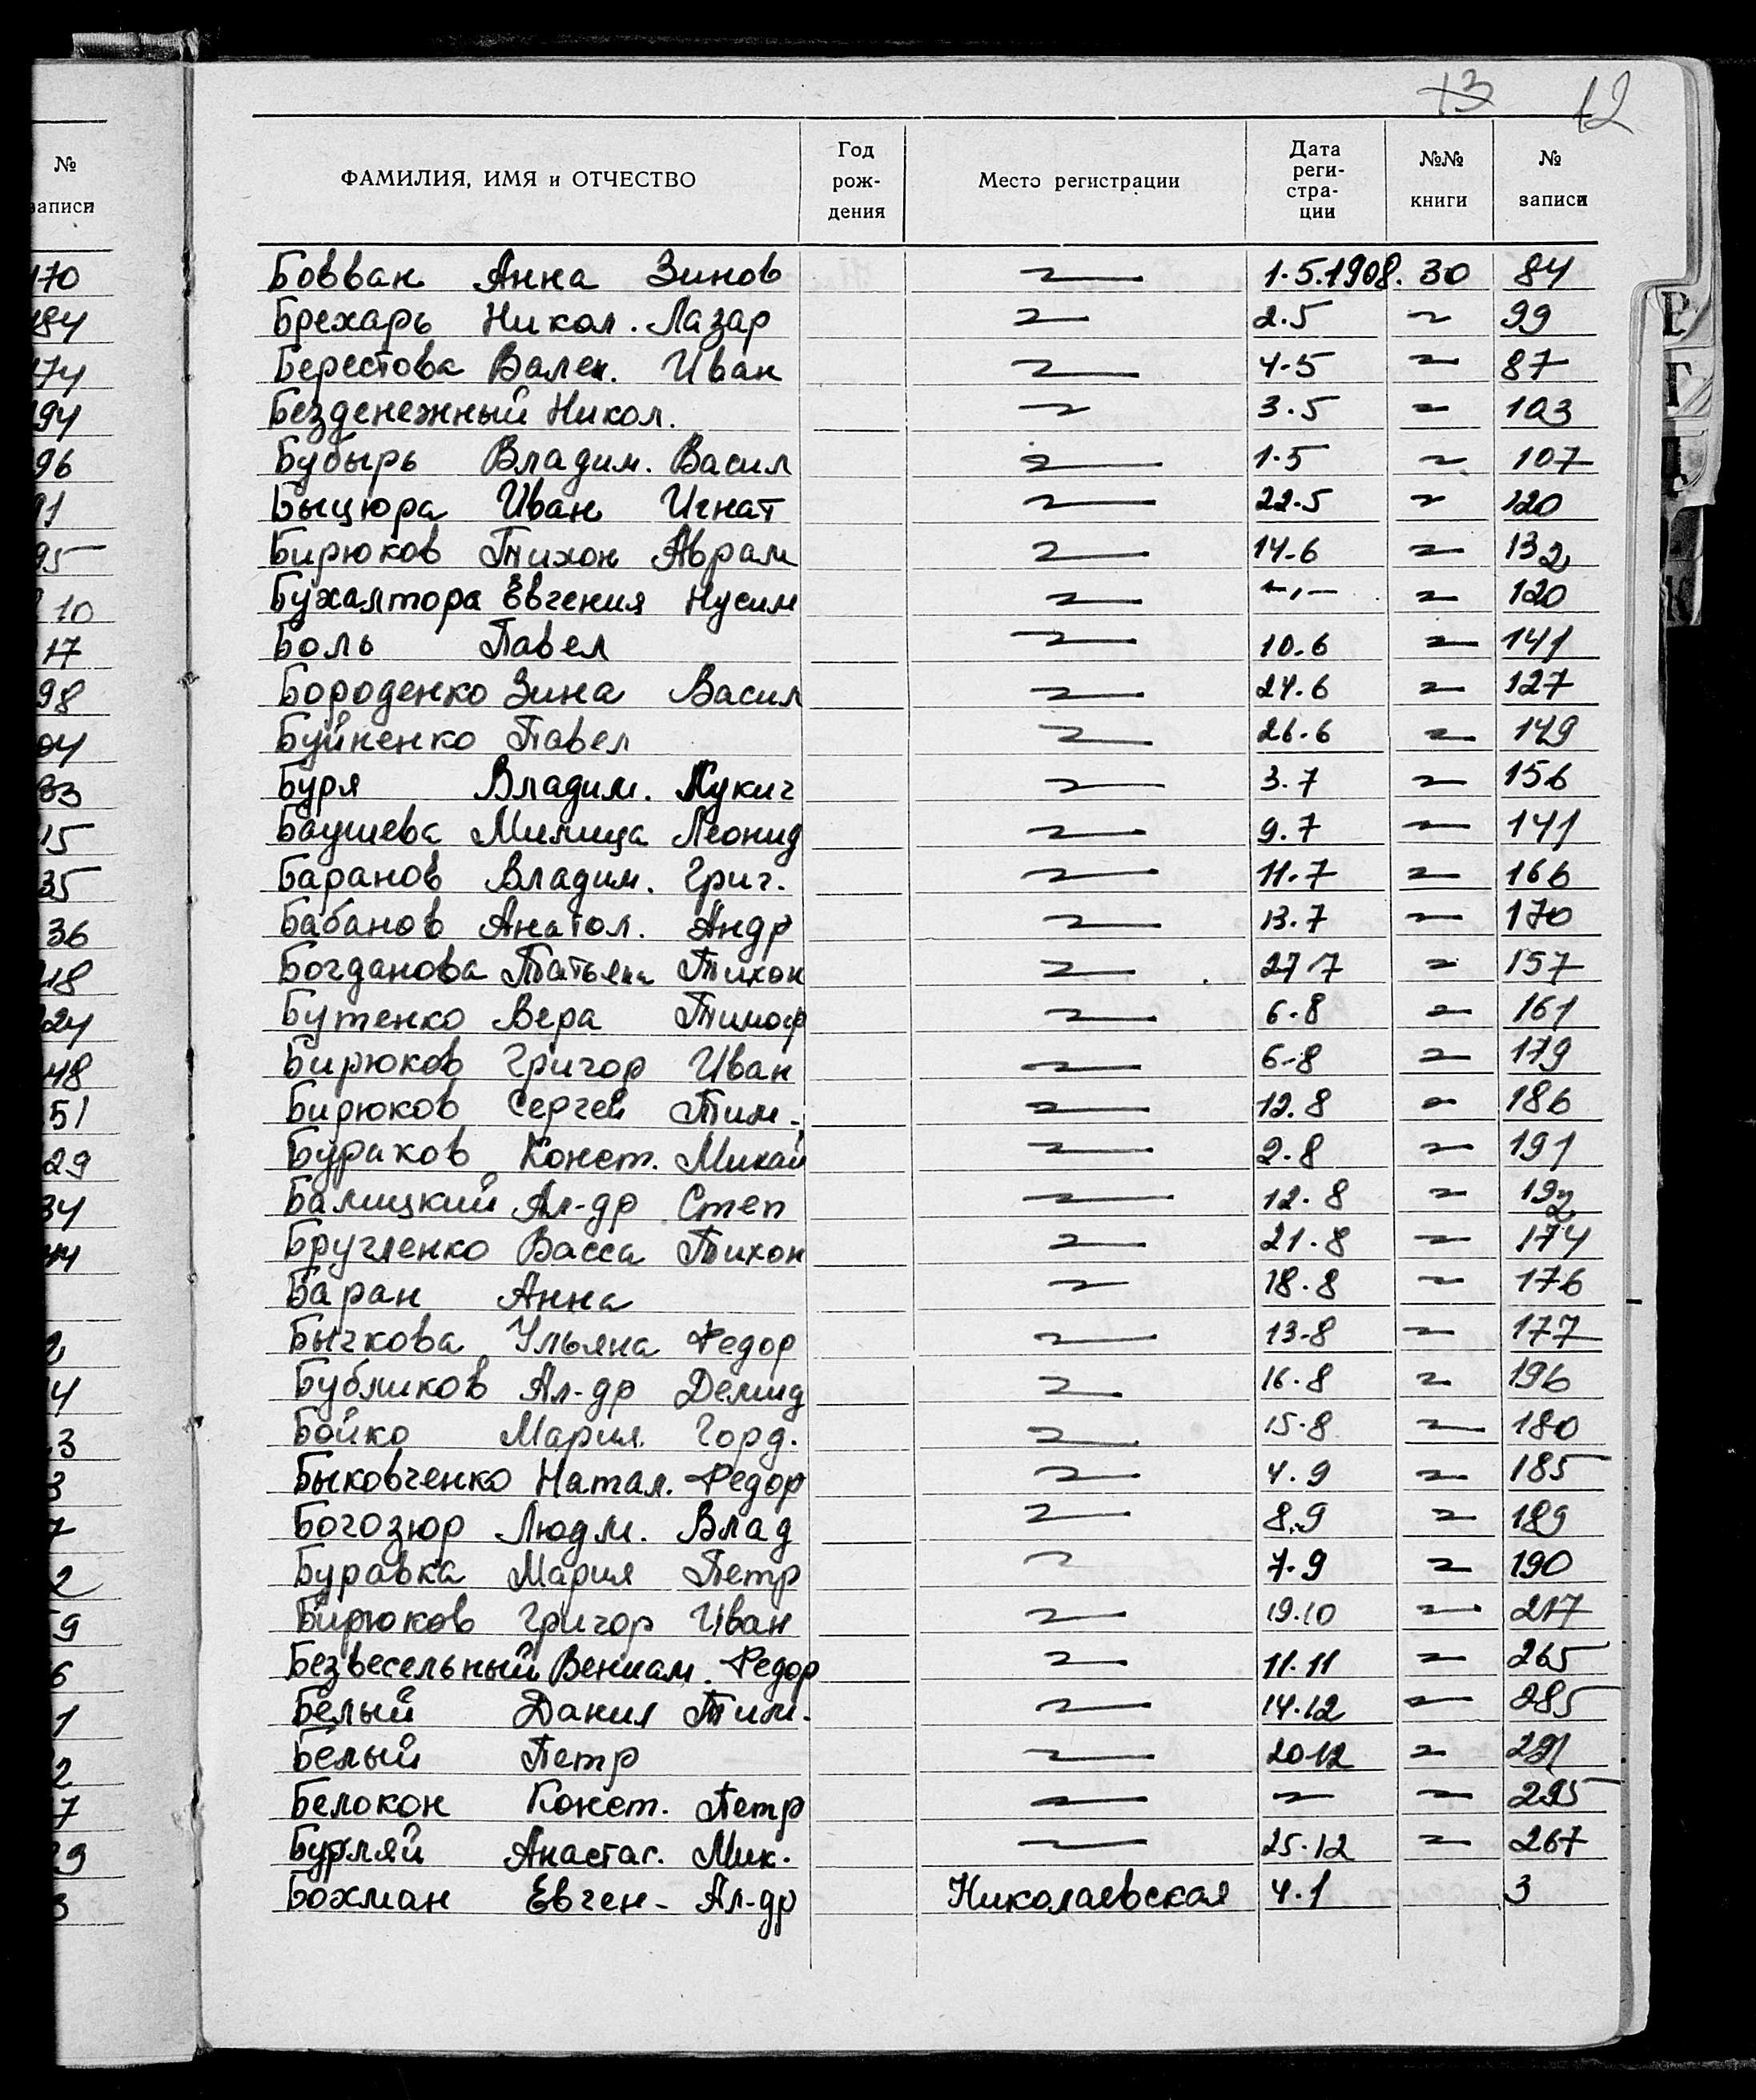 13 12
№ записи
ФАМИЛИЯ, ИМЯ и ОТЧЕСТВО Год рож-дения Место регистрации Дата реги-стра-ции №№ книги № записи
170 Бовван Анна Зинов 1.5.1908. 30 84
184 Брехарь Никол. Лазар 2.5 99
174 Берестова Вален. Иван 4-5 87
194 Безденежный Никол. 3.5 103
96 Бубырь Владим. Васил 1.5 107
91 Быцюра Иван Игнат 22.5 120
95 Бирюков Тихон Аврам 14-6 132
10 Бухалтора Евгения Нусим -,,- 120
17 Боль Павел 10.6 141
98 Бороденко Зина Васил 24.6 127
04 Буйненко Павел 26.6 149
83 Буря Владим. Лукич 3.7 156
15 Баушева Милица Леонид 9.7 141
35 Баранов Владим. Григ. 11.7 166
36 Бабанов Анатол. Андр 13.7 170
18 Богданова Татьяна Тихон 27 7 157
24 Бутенко Вера Тимоф 6.8 161
48 Бирюков Григор Иван 6-8 179
51 Бирюков Сергей Тим- 12.8 186
29 Бураков Конст. Михай 2.8 191
34 Балицкий Ал-др Степ 12.8 192
44 Бругленко Васса Тихон 21.8 174
Баран Анна 18.8 176
2 Бычкова Ульяна Федор 13-8 177
4 Бубликов Ал-др Демид 16.8 196
3 Бойко Мария Горд. 15.8 180
3 Быковченко Натал. Федор 4.9 185
7 Богозюр Людм. Влад 8.9 189
2 Буравка Мария Петр 7.9 190
9 Бирюков Григор Иван 19.10 217
6 Безвесельный Вениам. Федор 11.11 265
1 Белый Данил Тим. 14.12 285
2 Белый Петр 20 12 291
7 Белокон Конст. Петр 295
9 Бурляй Анастас. Мих. 25.12 267
3 Бохман Евген- Ал-др Николаевская 4.1 3